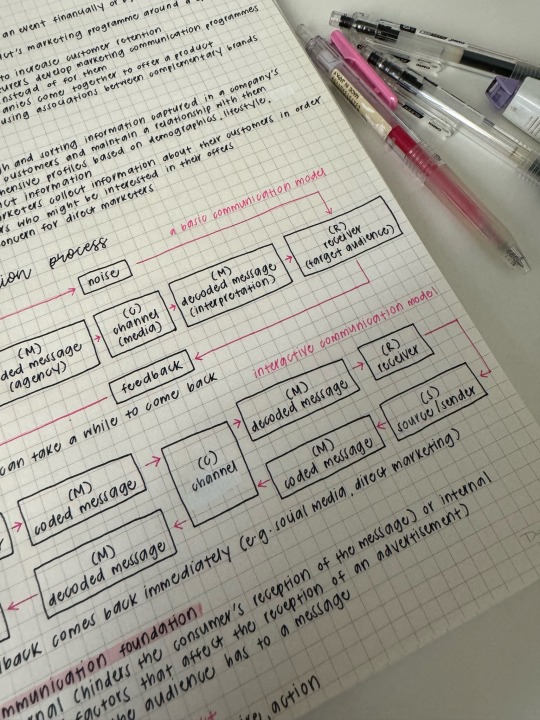 an event financially or
marketing programme around a
to increase customer retention
develop marketing communication programmes
instead of for them
come together to offer a product
using associations between complementary brands
and sorting information captured in a company's
customers and maintain a relationship with them
profiles based on demographics, lifestyle,
information
collect information about their customers in order
who might be interested in their offers
concern for direct marketers
process
a basic communication model
noise
(M)
message
(agency)
(C)
channel
(media)
(M)
decoded message
(interpretation)
(R)
receiver
(target audience)
feedback
can take a while to come back
interactive communication model
(M)
coded message
(M)
decoded message
(C)
channel
(M)
decoded message
(M)
coded message
(R)
receiver
(S)
source/sender
comes back immediately (e.g. social media, direct marketing)
foundation
(hinders the consumer's reception of the message) or internal
factors that affect the reception of an advertisement)
the audience has to a message
action